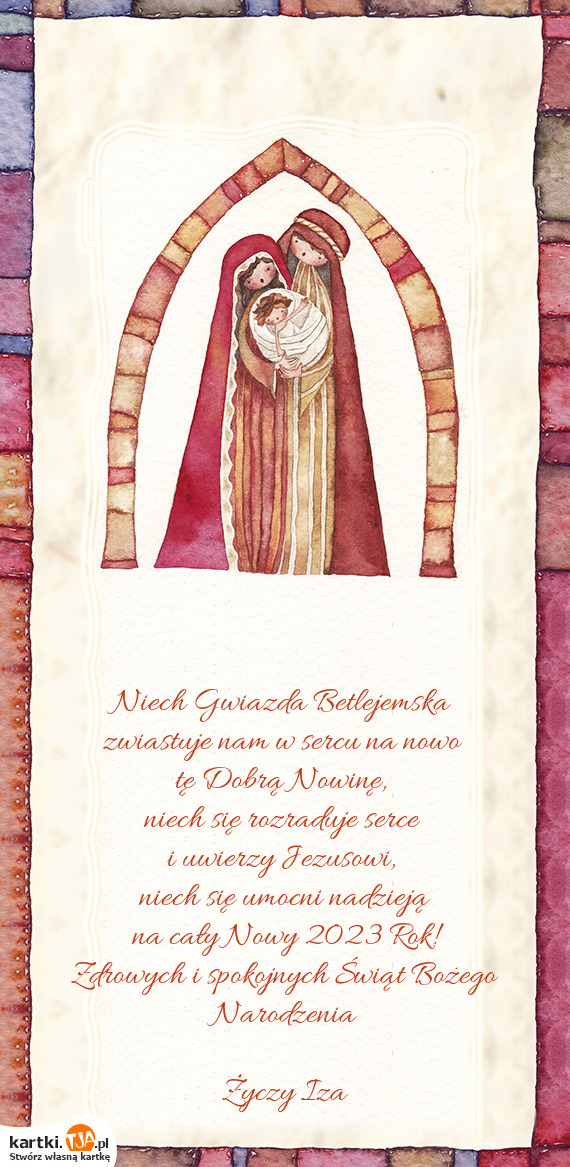 Niech Gwiazda Betlejemska
zwiastuje nam w sercu na nowo
tę Dobrą Nowinę,
niech się rozraduje serce
i uwierzy Jezusowi,
niech się umocni nadzieją
na cały Nowy 2023 Rok!
Zdrowych i spokojnych Świąt Bożego
Narodzenia
Życzy Iza
kartki.TJA.pl
Stwórz własną kartkę